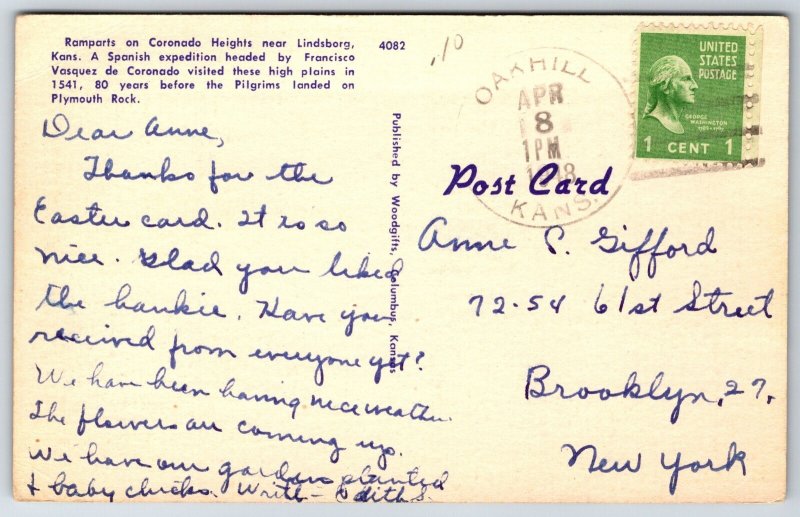 Ramparts on Coronado Heights near Lindsborg,
Kans. A Spanish expedition headed by Francisco
Vasquez de Coronado visited these high plains in
1541, 80 years before the Pilgrims landed on
Plymouth Rock.
4082
.10
Dear Anne,
Thanks for the
Easter card. It is so
nice. Glad you liked
the hankie. Have you
received from everyone yet?
We have been having nice weather.
The flowers are coming up.
We have our gardens planted
+ baby chicks. Write - Edith S.
Published by Woodgifts, Columbus, Kansas
OAKHILL
APR
8
1PM
KANS.
UNITED
STATES
POSTAGE
GEORGE
WASHINGTON
1789-1797
1 CENT 1
Post Card
Anne P. Gifford
72-54 61st Street
Brooklyn, 27,
New York